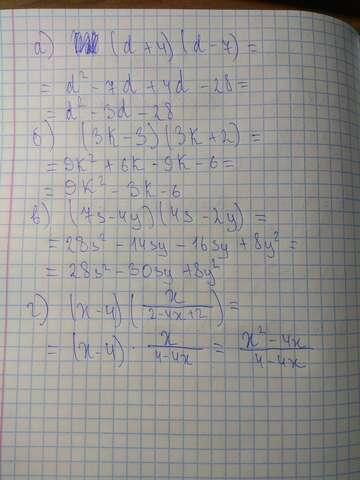 а) (d+4)(d-7)=
= d² - 7d + 4d - 28 =
= d² - 3d - 28
б) (3k-3)(3k+2)=
= 9k² + 6k - 9k - 6 =
= 9k² - 3k - 6
в) (7s-4y)(4s-2y) =
= 28s² - 14sy - 16sy + 8y² =
= 28s² - 30sy + 8y²
г) (x-4)(x/(2-4x+2))=
= (x-4) · x/(4-4x) = (x²-4x)/(4-4x)